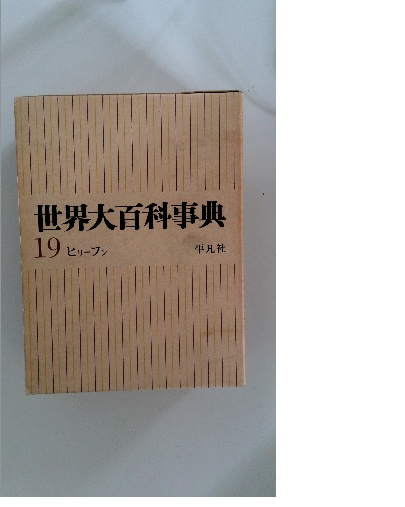 世界大百科事典
19 ヒリーブン
平凡社